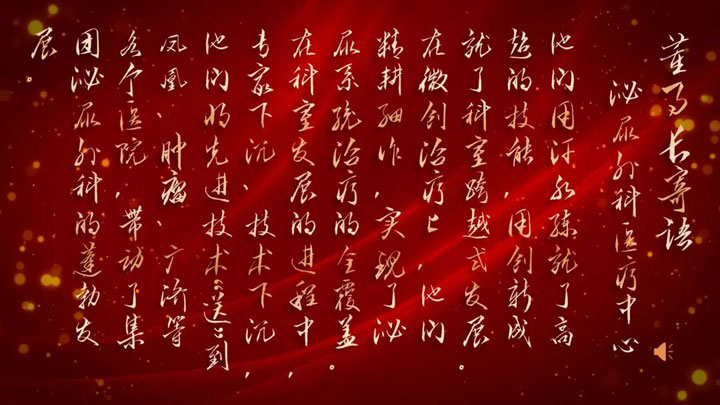 董事长寄语
泌尿外科医疗中心
他们用汗水练就了高
超的技能，用创新成
就了科室跨越式发展。
在微创治疗上，他们
精耕细作，实现了泌
尿系统治疗的全覆盖。
在科室发展的进程中，
专家下沉、技术下沉，
他们将先进技术“送”到
凤凰、肿瘤、广济等
各个医院，带动了集
团泌尿外科的蓬勃发
展。